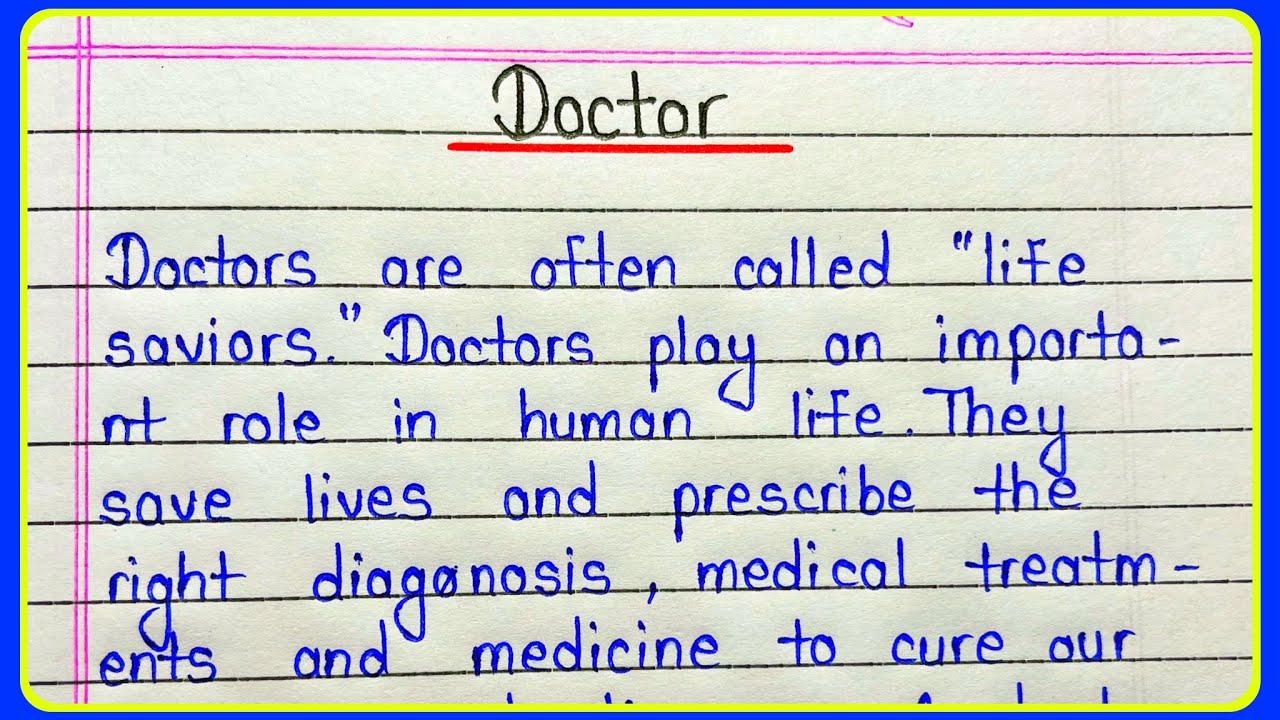 Doctor
Doctors are often called "life
saviors." Doctors play an importa-
nt role in human life. They
save lives and prescribe the
right diagonosis, medical treatm-
ents and medicine to cure our